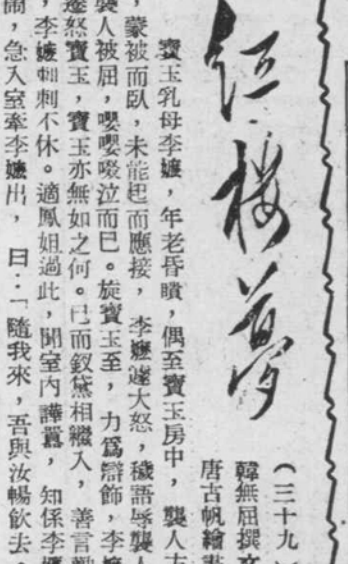 紅樓夢
（三十九
韓無屈撰文
唐古帆繪畫
寶玉乳母李嬤，年老昏聵，偶至寶玉房中，襲人
，蒙被而臥，未能起而應接，李嬤遽大怒，穢語辱襲人
襲人被屈，嚶嚶啜泣而已。旋寶玉至，力爲辯飾，李嬤
遂怒寶玉，寶玉亦無如之何。已而釵黛相繼入，善言勸
，李嬤刺刺不休。適鳳姐過此，聞室內譁囂，知係李嬤
鬧，急入室牽李嬤出，曰：「隨我來，吾與汝暢飲去。